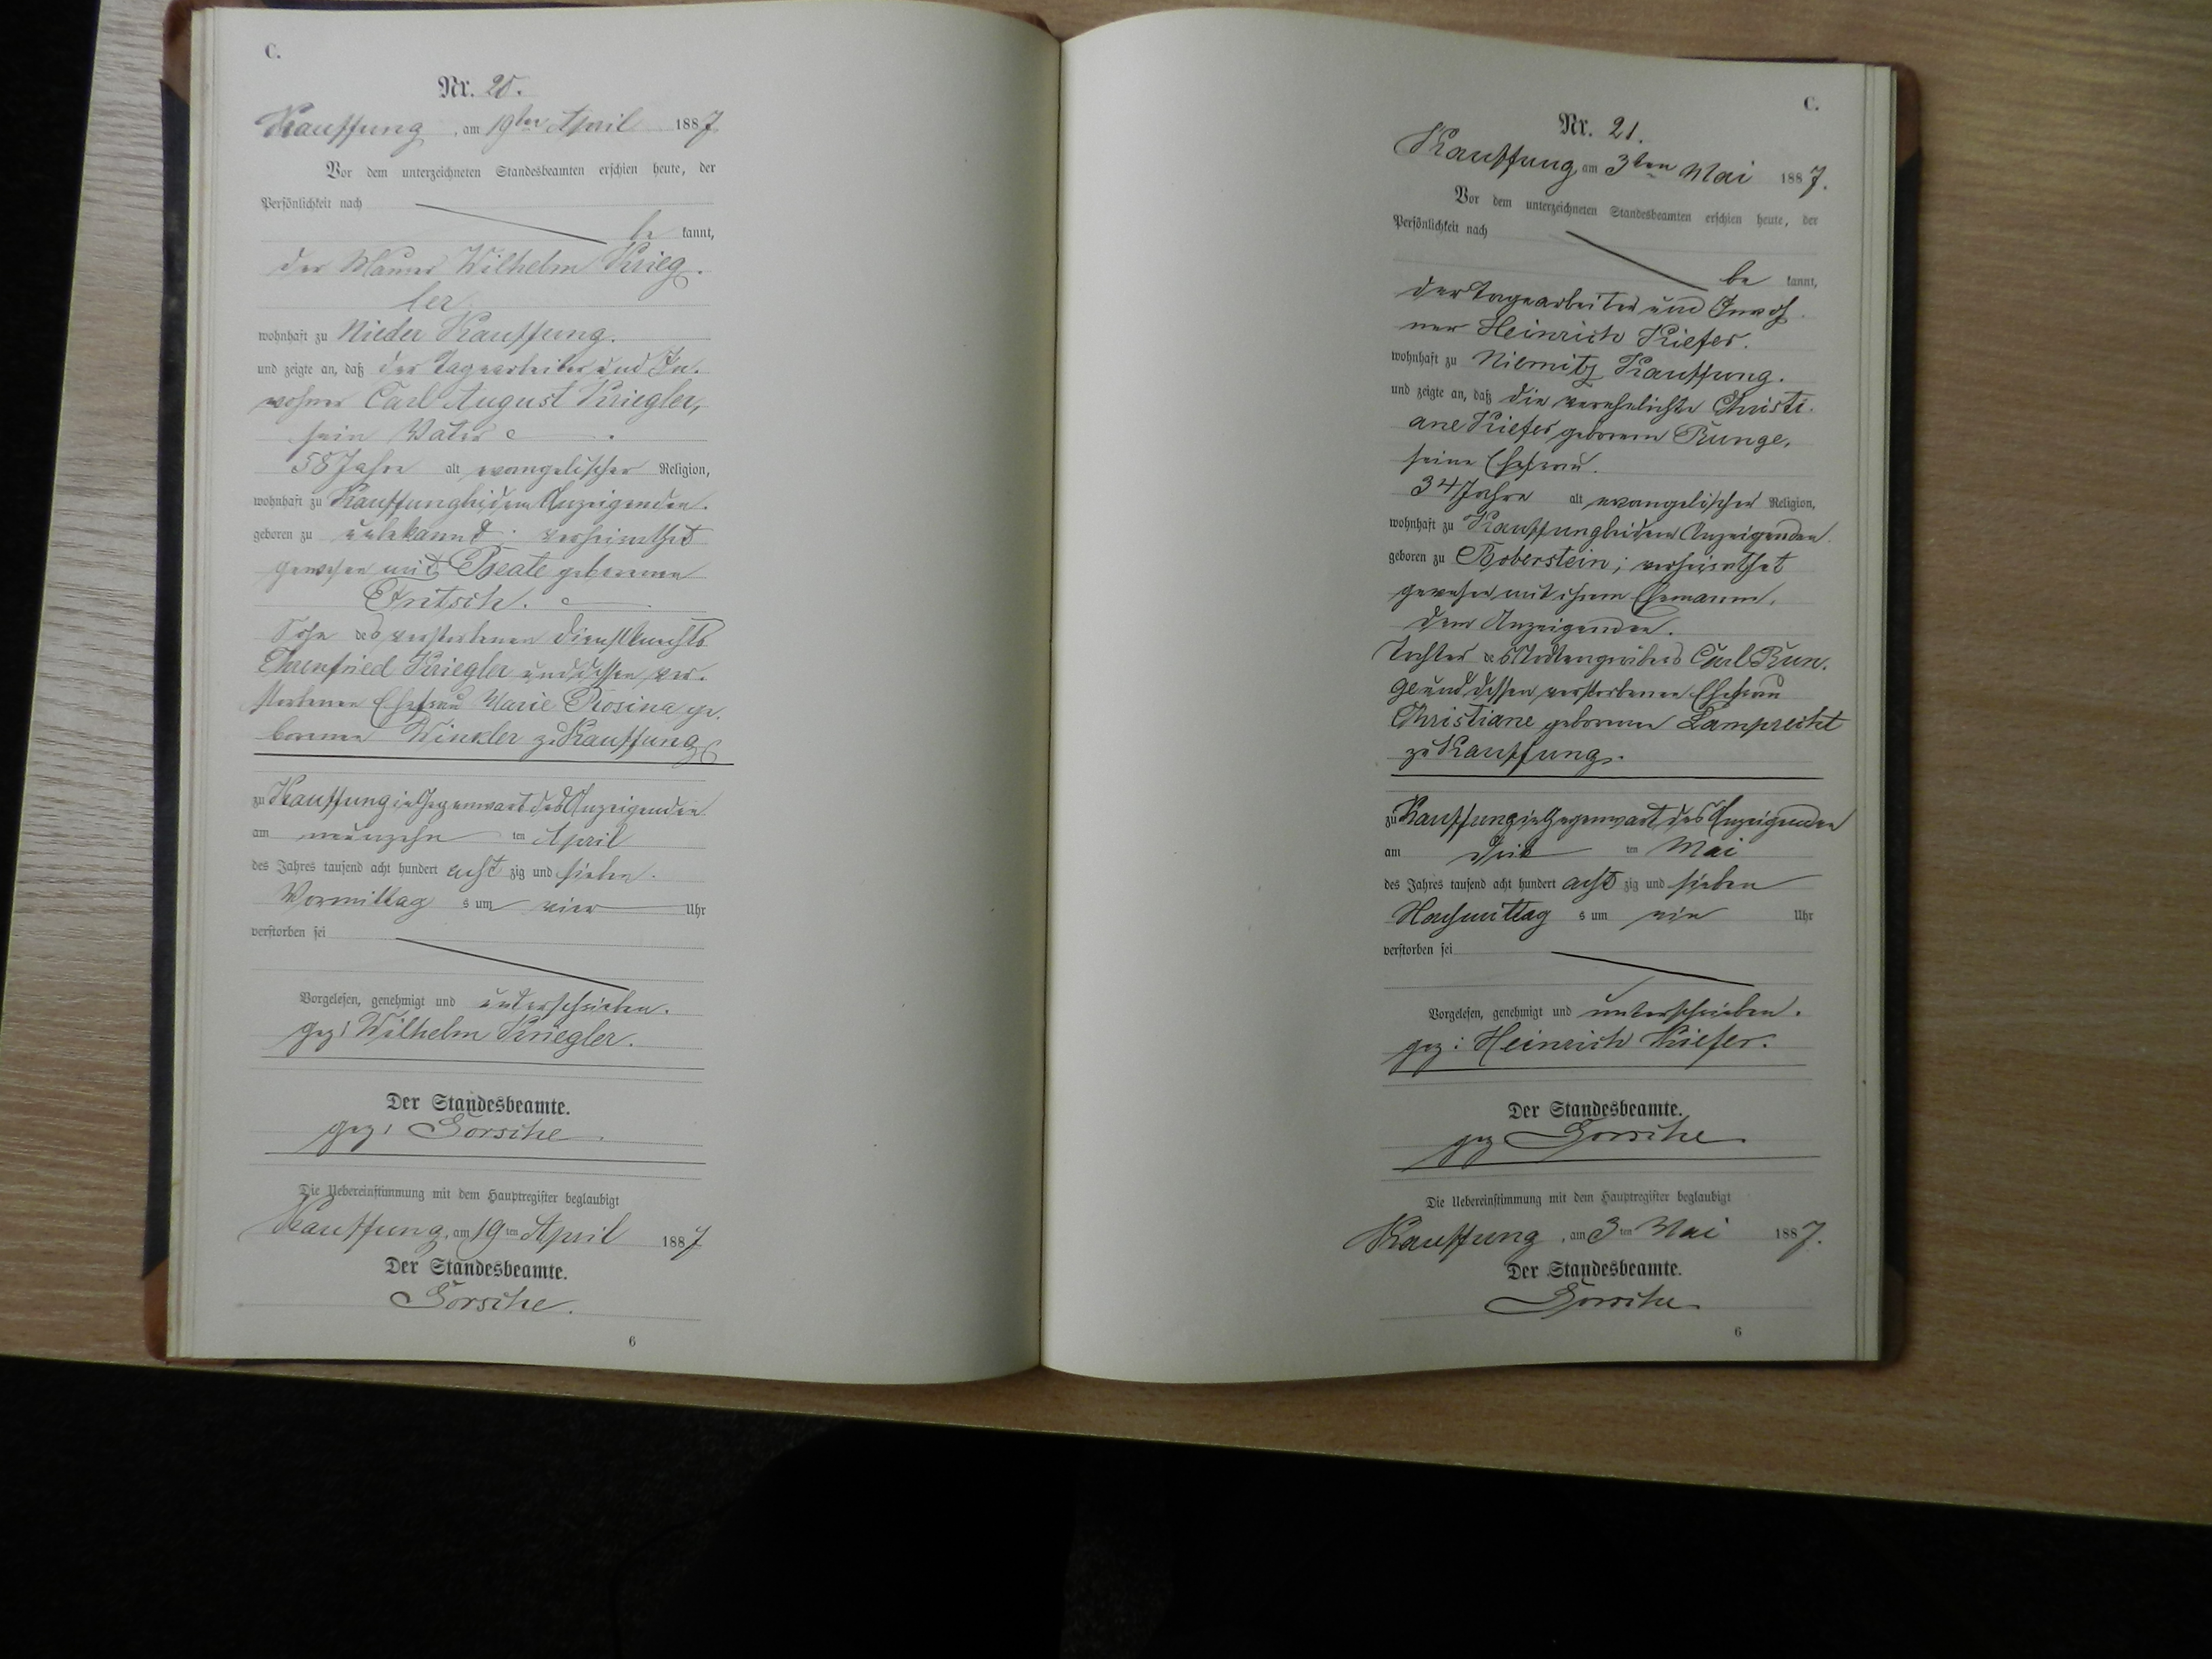 C.
Nr. 20.
Kauffung, am 19ten April 1887
Vor dem unterzeichneten Standesbeamten erschien heute, der
Persönlichkeit nach
be kannt,
der Maurer Wilhelm Krieg-
ler
wohnhaft zu Nieder Kauffung.
und zeigte an, daß der Tagearbeiter und In-
wohner Carl August Kriegler,
sein Vater
58 Jahre alt evangelischer Religion,
wohnhaft zu Kauffung bei dem Anzeigenden.
geboren zu unbekannt; verheirathet
gewesen mit Beate geborenen
Fritsch.
Sohn des verstorbenen Dienstknechts
Ehrenfried Kriegler und dessen ver-
storbenen Ehefrau Marie Rosina ge-
borenen Winkler zu Kauffung
zu Kauffung in Gegenwart des Anzeigenden
am neunzehn ten April
des Jahres tausend acht hundert acht zig und sieben.
Vormittag s um vier Uhr
verstorben sei
Vorgelesen, genehmigt und unterschrieben.
gez: Wilhelm Kriegler.
Der Standesbeamte.
gez:
Die Uebereinstimmung mit dem Hauptregister beglaubigt
Kauffung, am 19ten April 1887
Der Standesbeamte.
6
C.
Nr. 21.
Kauffung, am 3ten Mai 1887.
Vor dem unterzeichneten Standesbeamten erschien heute, der
Persönlichkeit nach
be kannt,
der Tagearbeiter und Inwoh-
ner Heinrich Kiefer.
wohnhaft zu Niemitz Kauffung.
und zeigte an, daß die verehelichte Christi-
ane Kiefer geborene Runge,
seine Ehefrau.
34 Jahre alt evangelischer Religion,
wohnhaft zu Kauffung bei dem Anzeigenden.
geboren zu Boberstein; verheirathet
gewesen mit ihrem Ehemanne,
dem Anzeigenden.
Tochter des Carl Run-
ge und dessen verstorbenen Ehefrau
Christiane geborenen Lamprecht
zu Kauffung.
zu Kauffung in Gegenwart des Anzeigenden
am drit ten Mai
des Jahres tausend acht hundert acht zig und sieben
Nachmittag s um ein Uhr
verstorben sei
Vorgelesen, genehmigt und unterschrieben.
gez: Heinrich Kiefer.
Der Standesbeamte.
gez
Die Uebereinstimmung mit dem Hauptregister beglaubigt
Kauffung, am 3ten Mai 1887.
Der Standesbeamte.
6